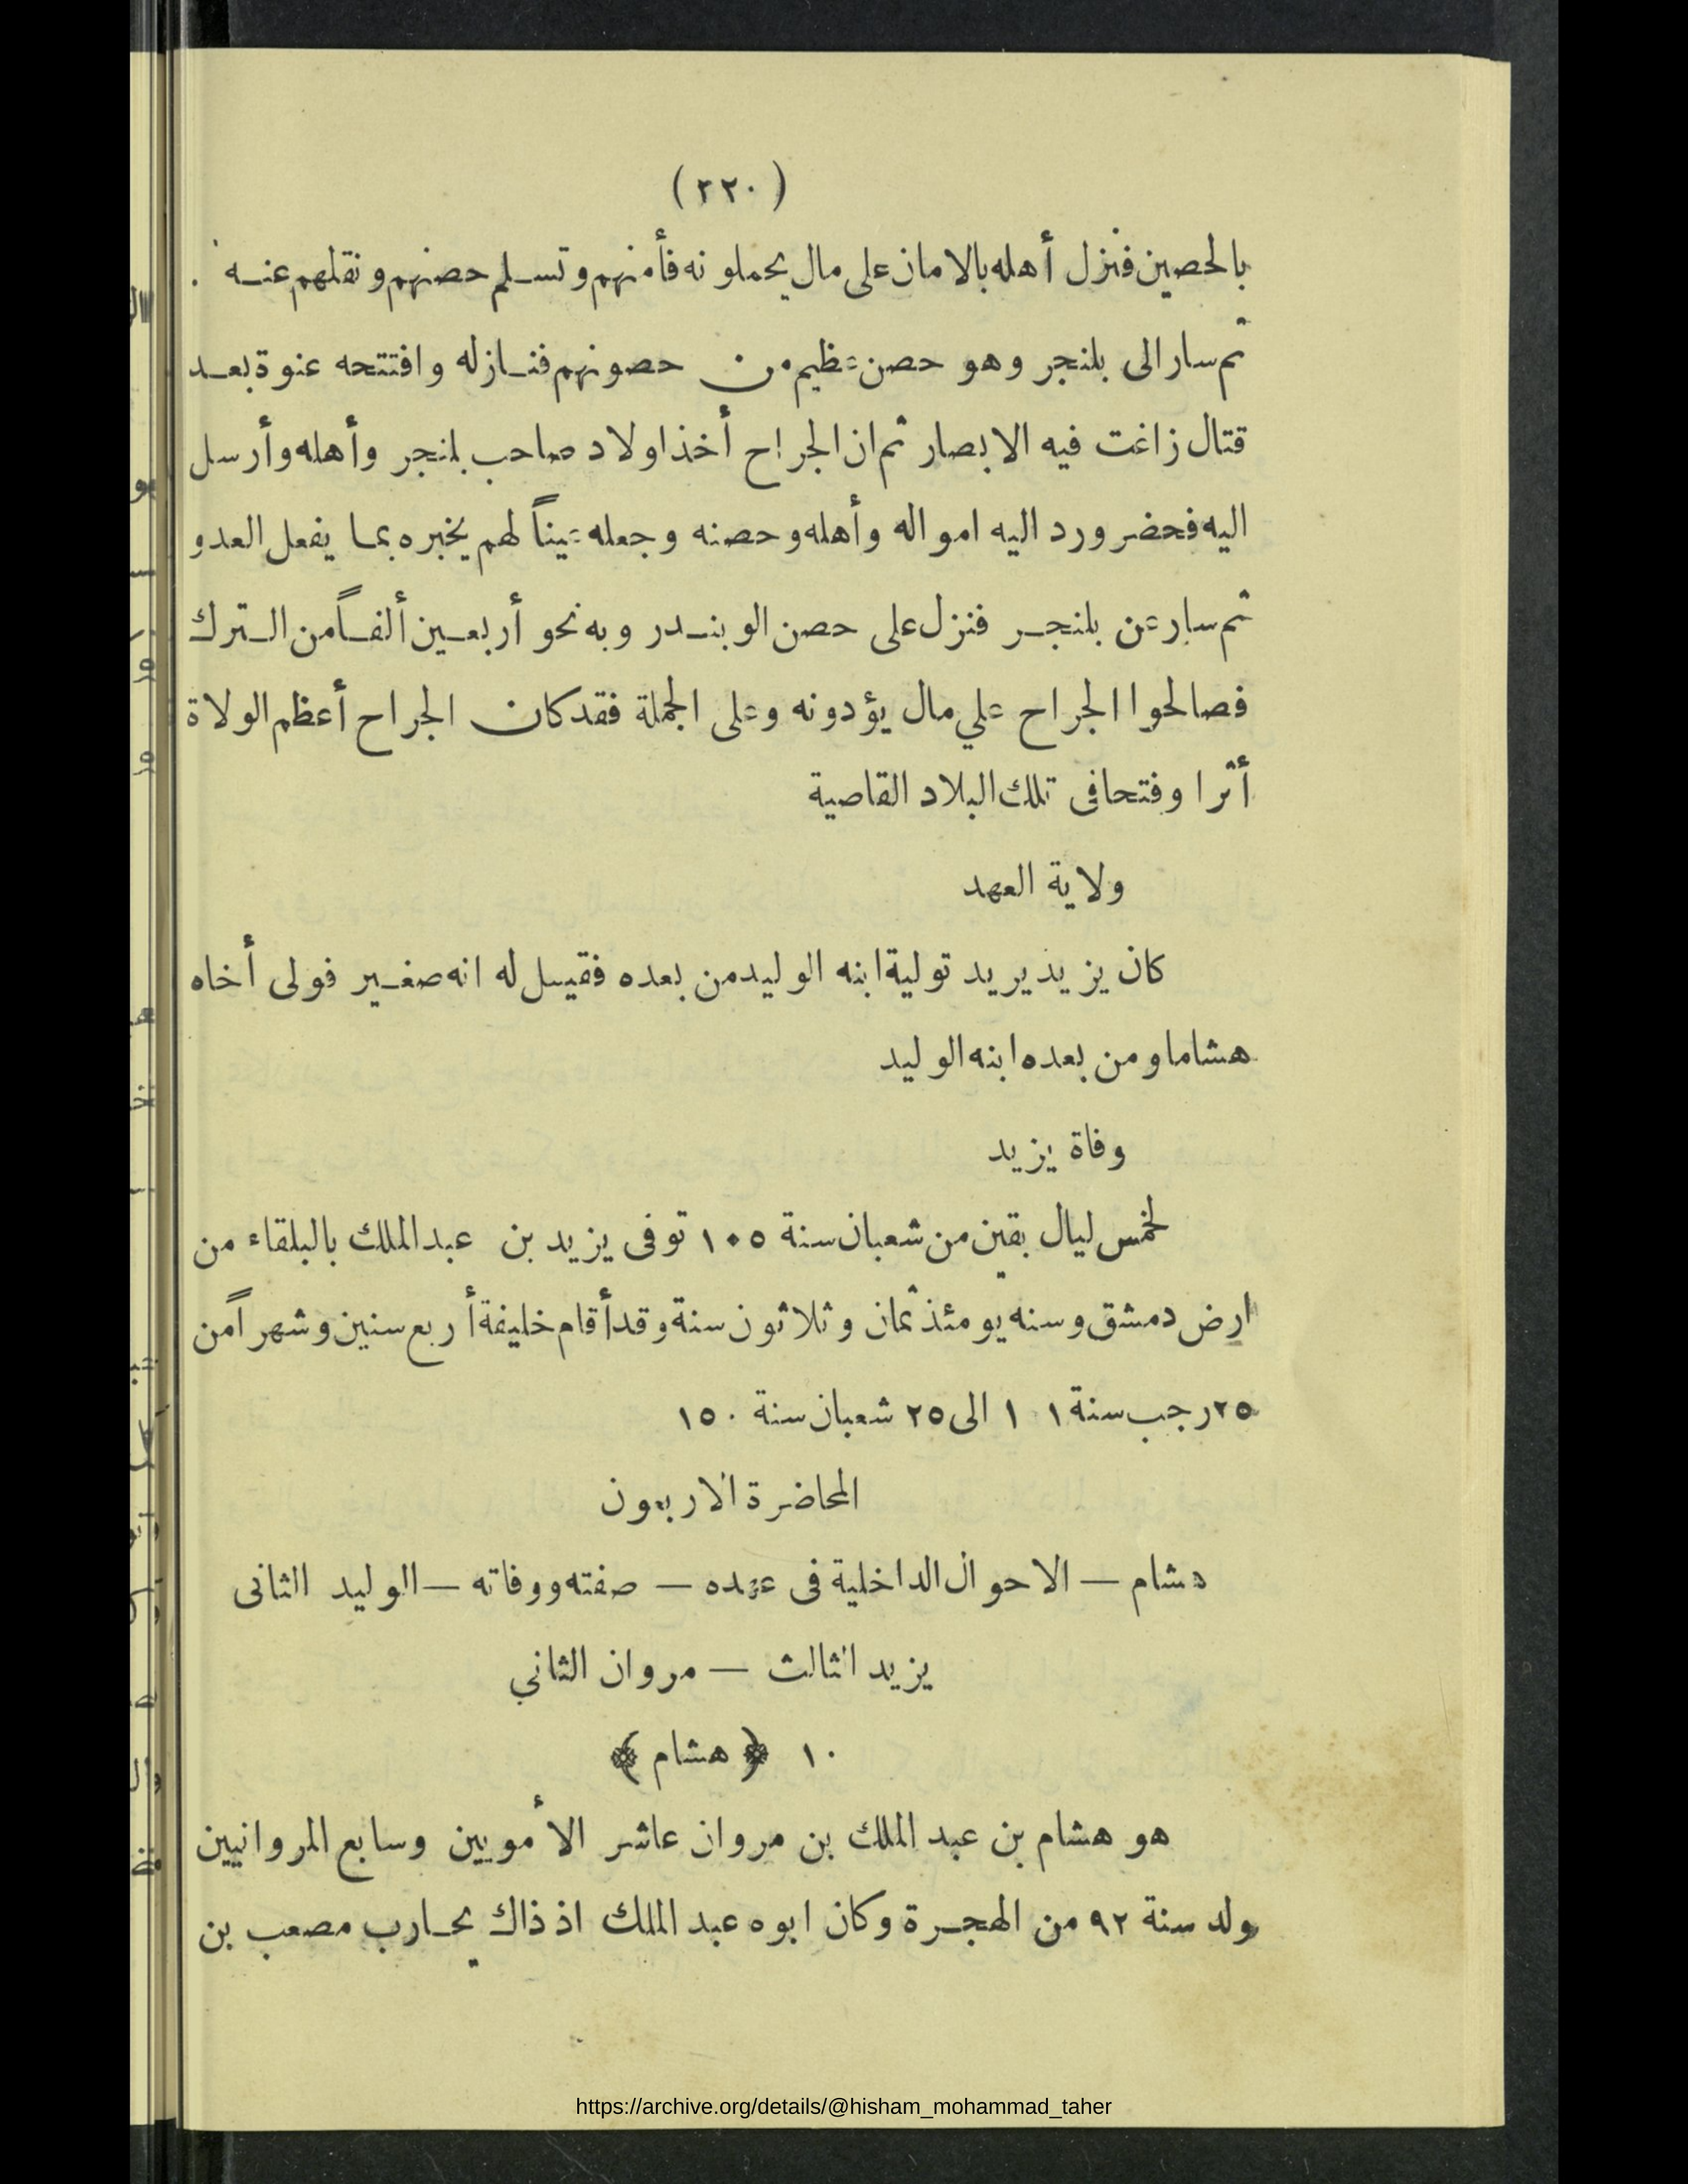 (٢٢٠)
بالحصين فنزل أهله بالامان على مال يحملونه فأمنهم وتسلم حصنهم ونقلهم عنه .
ثم سار الى بلنجر وهو حصن عظيم من حصونهم فنازله وافتتحه عنوة بعد
قتال زاغت فيه الابصار ثم ان الجراح أخذ اولاد صاحب بلنجر وأهله وأرسل
اليه فحضر ورد اليه امواله وأهله وحصنه وجعله عيناً لهم يخبره بما يفعل العدو
ثم سار عن بلنجر فنزل على حصن الوبندر وبه نحو أربعين ألفاً من الترك
فصالحوا الجراح علي مال يؤدونه وعلى الجملة فقد كان الجراح أعظم الولاة
أثرا وفتحا فى تلك البلاد القاصية
ولاية العهد
كان يزيد يريد تولية ابنه الوليد من بعده فقيل له انه صغير فولى أخاه
هشاما ومن بعده ابنه الوليد
وفاة يزيد
لخمس ليال بقين من شعبان سنة ١٠٥ توفى يزيد بن عبد الملك بالبلقاء من
ارض دمشق وسنه يومئذ ثمان وثلاثون سنة وقد أقام خليفة أربع سنين وشهراً من
٢٥ رجب سنة ١٠١ الى ٢٥ شعبان سنة ١٥٠
المحاضرة الاربعون
هشام — الاحوال الداخلية فى عهده — صفته ووفاته — الوليد الثانى
يزيد الثالث — مروان الثاني
١٠ ﴿ هشام ﴾
هو هشام بن عبد الملك بن مروان عاشر الأمويين وسابع المروانيين
ولد سنة ٩٢ من الهجرة وكان ابوه عبد الملك اذ ذاك يحارب مصعب بن
https://archive.org/details/@hisham_mohammad_taher